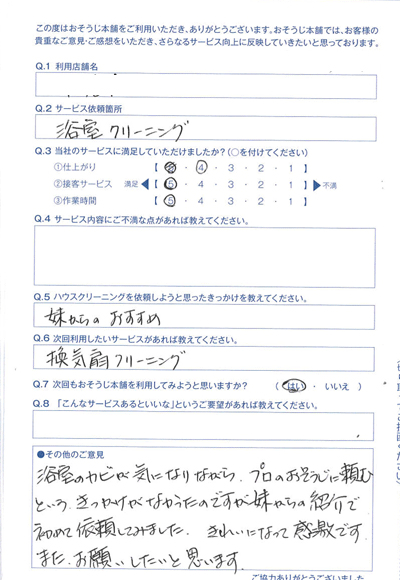 この度はおそうじ本舗をご利用いただき、ありがとうございます。おそうじ本舗では、お客様の
貴重なご意見・ご感想をいただき、さらなるサービス向上に反映していきたいと思っております。
Q.1 利用店舗名
Q.2 サービス依頼箇所
浴室クリーニング
Q.3 当社のサービスに満足していただけましたか?(○を付けてください)
①仕上がり 【 5 ・ 4 ・ 3 ・ 2 ・ 1 】
②接客サービス 満足 ◀【 5 ・ 4 ・ 3 ・ 2 ・ 1 】▶ 不満
③作業時間 【 5 ・ 4 ・ 3 ・ 2 ・ 1 】
Q.4 サービス内容にご不満な点があれば教えてください。
Q.5 ハウスクリーニングを依頼しようと思ったきっかけを教えてください。
妹からの おすすめ
Q.6 次回利用したいサービスがあれば教えてください。
換気扇クリーニング
Q.7 次回もおそうじ本舗を利用してみようと思いますか? ( はい ・ いいえ )
Q.8 「こんなサービスあるといいな」というご要望があれば教えてください。
●その他のご意見
浴室のカビが気になりながら、プロのおそうじに頼む
という きっかけがなかったのですが妹からの紹介で
初めて依頼してみました。 きれいになって感激です。
また、お願いしたいと思います。
ご協力ありがとうございました。